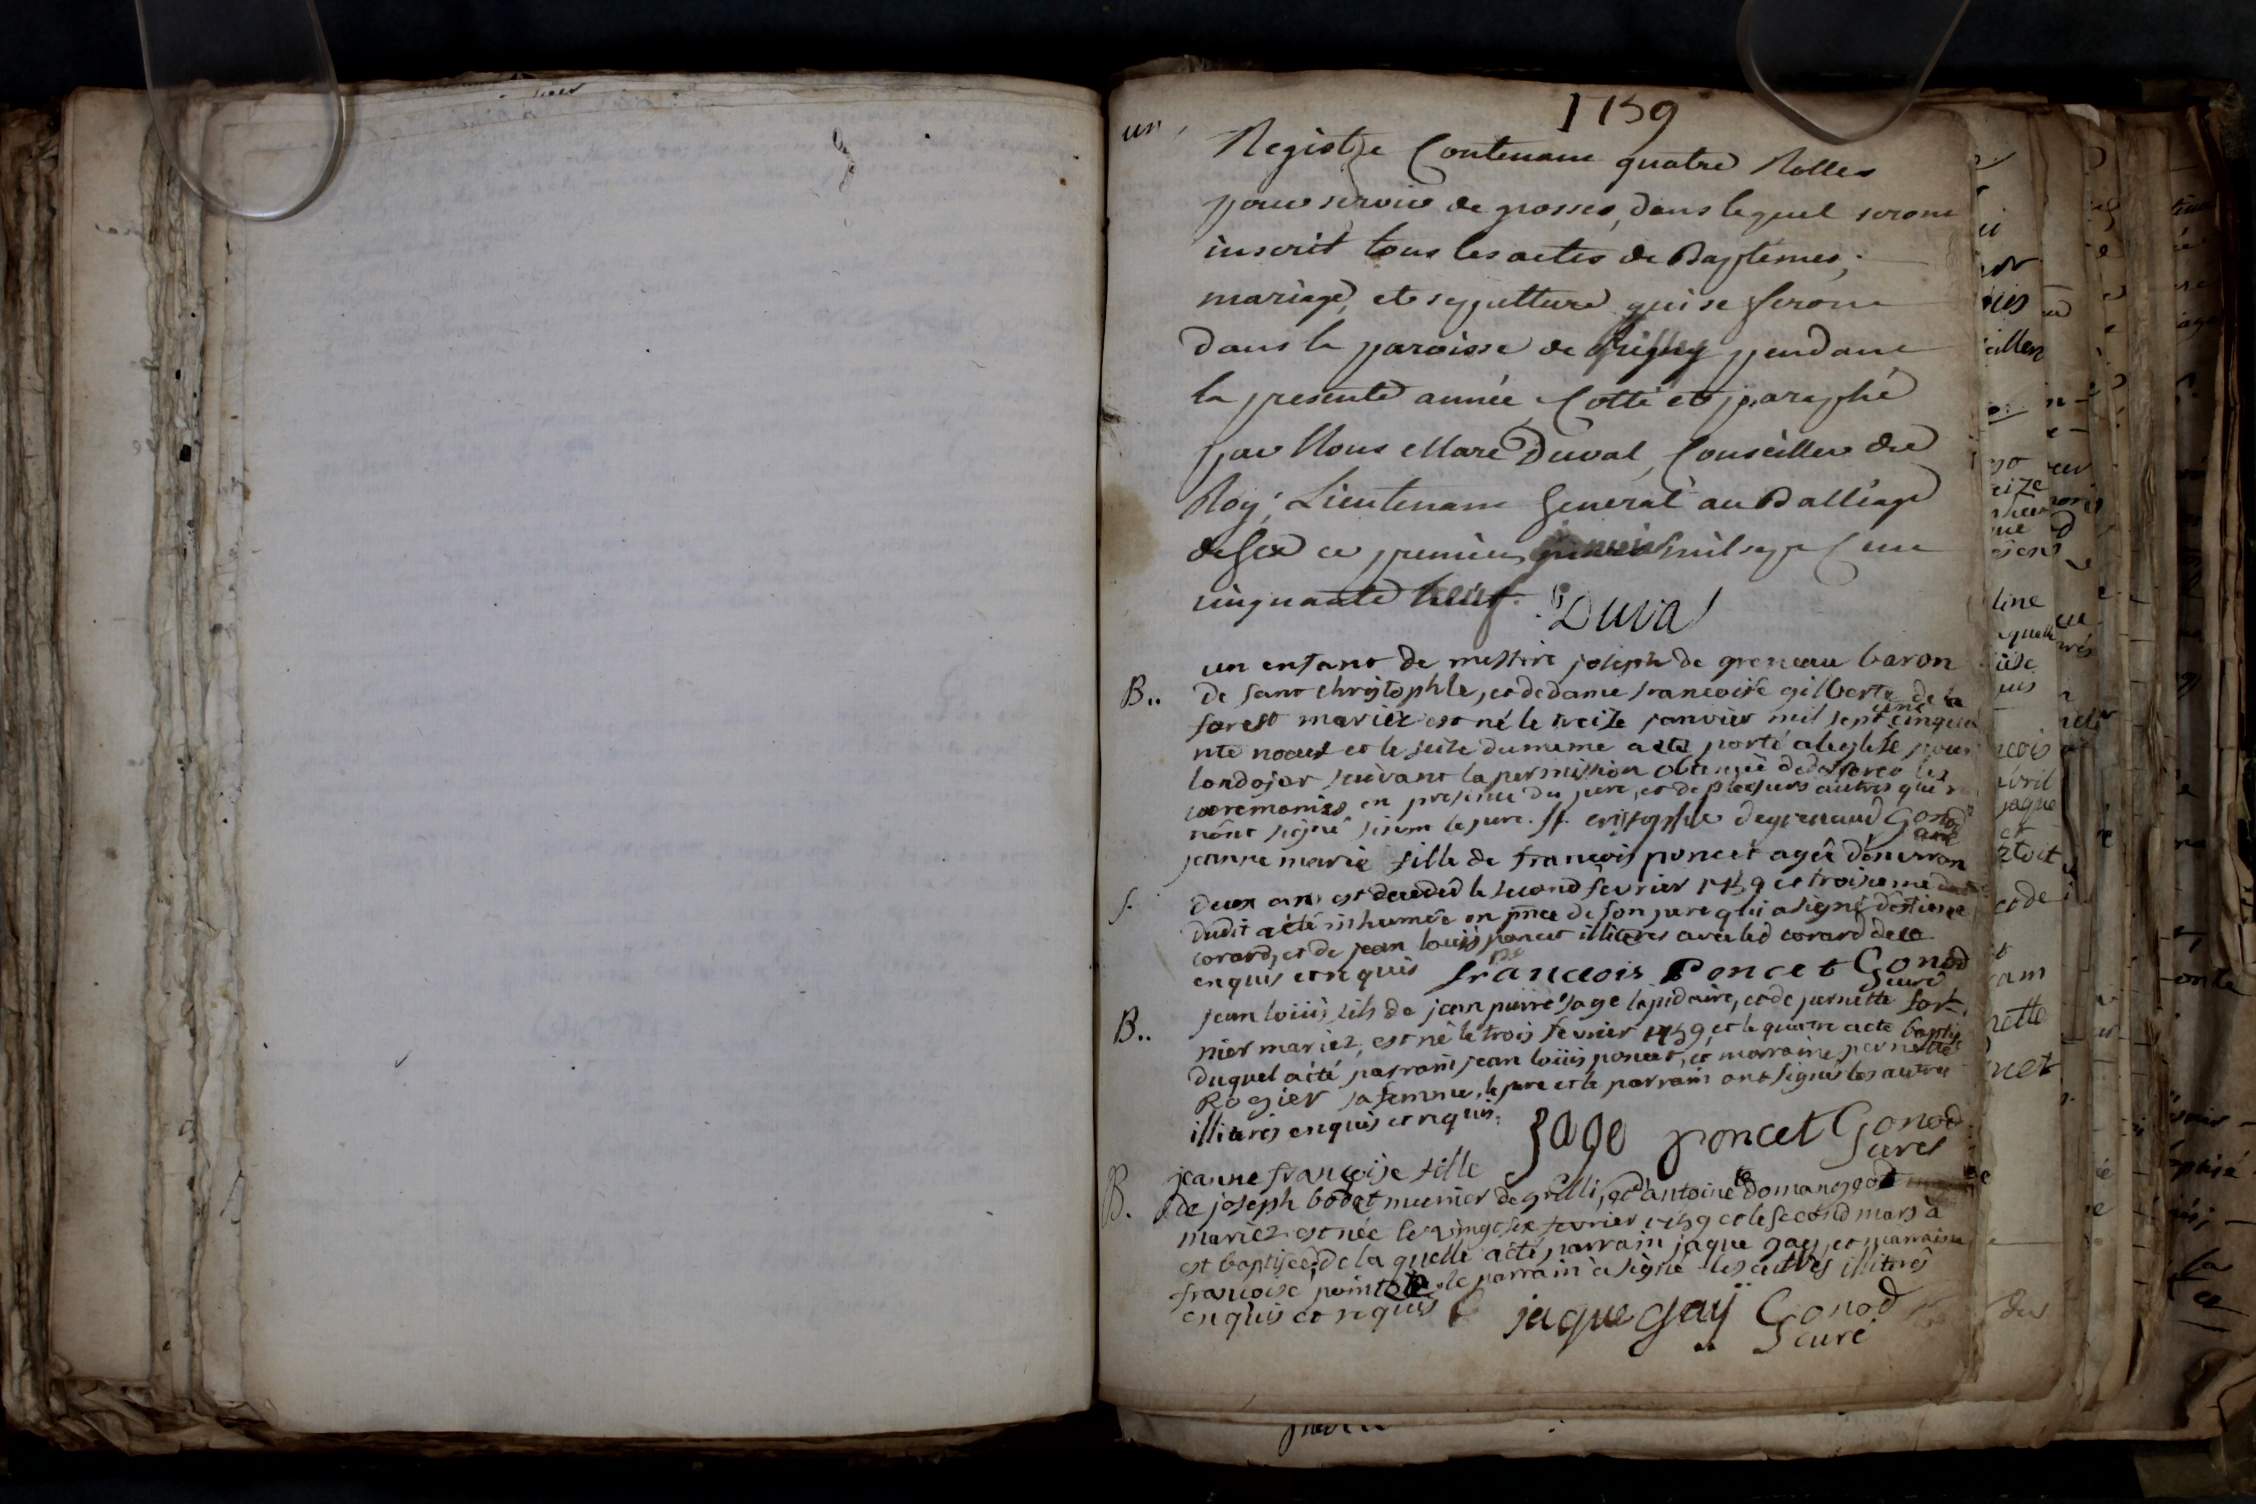 1759
un
Registre Contenant quatre Rolles
pour servir de grosses, dans lequel seront
inscrit tous les actes de Baptemes,
mariage, et sepulture qui se feront
dans la paroisse de pendant
la presente année, Cotté et paraphé
par Nous Marc Duval, Conseiller du
Roy, Lieutenant General au Balliage
de Gex ce premier janvier mil sept Cent
cinquante neuf. Duval
un enfant de messire joseph de greneau baron
B.. de saint christophle, et de dame francoise gilberte de la
forest mariez est né le treize janvier mil sept cent cinqua
nte noeuf et le seize du meme a été porté a leglise pour
londojer suivant la permission obtenüe de les
ceremonies en presence du pere, et de plusieurs autres qui
nont signé sinon le pere. cristophle degrenaud Gonod
curé
jeanne marie fille de françois poncet agée denviron
S. deux ans est decedeé le second fevrier 1759 et troisieme
dudit a été inhumée en pnce de son pere qui a signé d'étienne
corard, et de jean loüis poncet illiteres avec led corard de ce
enquis et requis francois Poncet Gonod
curé
jean loüis fils de jean pierre sage lapidaire, et de pernette for-
B.. nier mariez, est né le trois fevrier 1759, et le quatre a ete baptisé
duquel a été parrain jean loüis poncet, et marraine pernette
Rogier sa femme, le pere et le parrain ont signés les autres
illiteres enquis et requis. Sage poncet Gonod
curé
jeanne françoise fille
B. de joseph bodet munier de grilli, et d'antoinete domangeot
mariez est née le vingt six fevrier 1759 et le second mars a
est baptiseé, de la quelle a été parrain jaque gay, et marraine
francoise le parrain a signé les autres illiterés
enquis et requis jaque Gay Gonod
curé